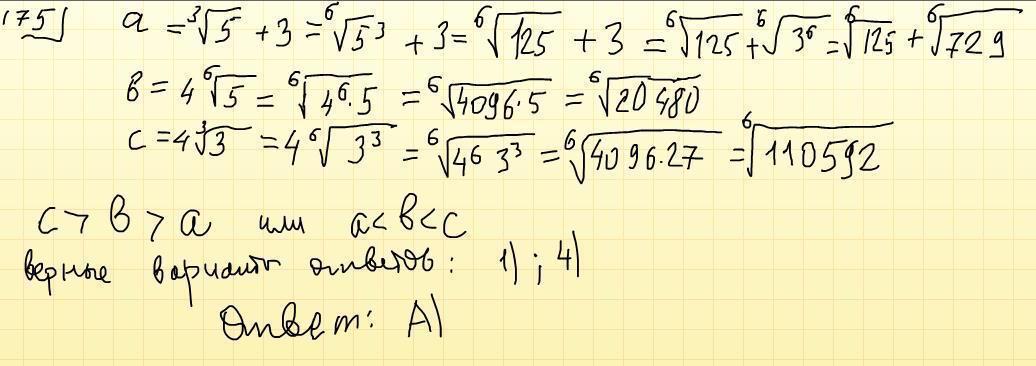 175
a = ³√5 + 3 = ⁶√5³ + 3 = ⁶√125 + 3 = ⁶√125 + ⁶√3⁶ = ⁶√125 + ⁶√729
в = 4 ⁶√5 = ⁶√4⁶·5 = ⁶√4096·5 = ⁶√20480
c = 4 ³√3 = 4 ⁶√3³ = ⁶√4⁶ 3³ = ⁶√4096·27 = ⁶√110592
c > в > a или a < в < c
верные варианты ответов: 1) ; 4)
Ответ: A)